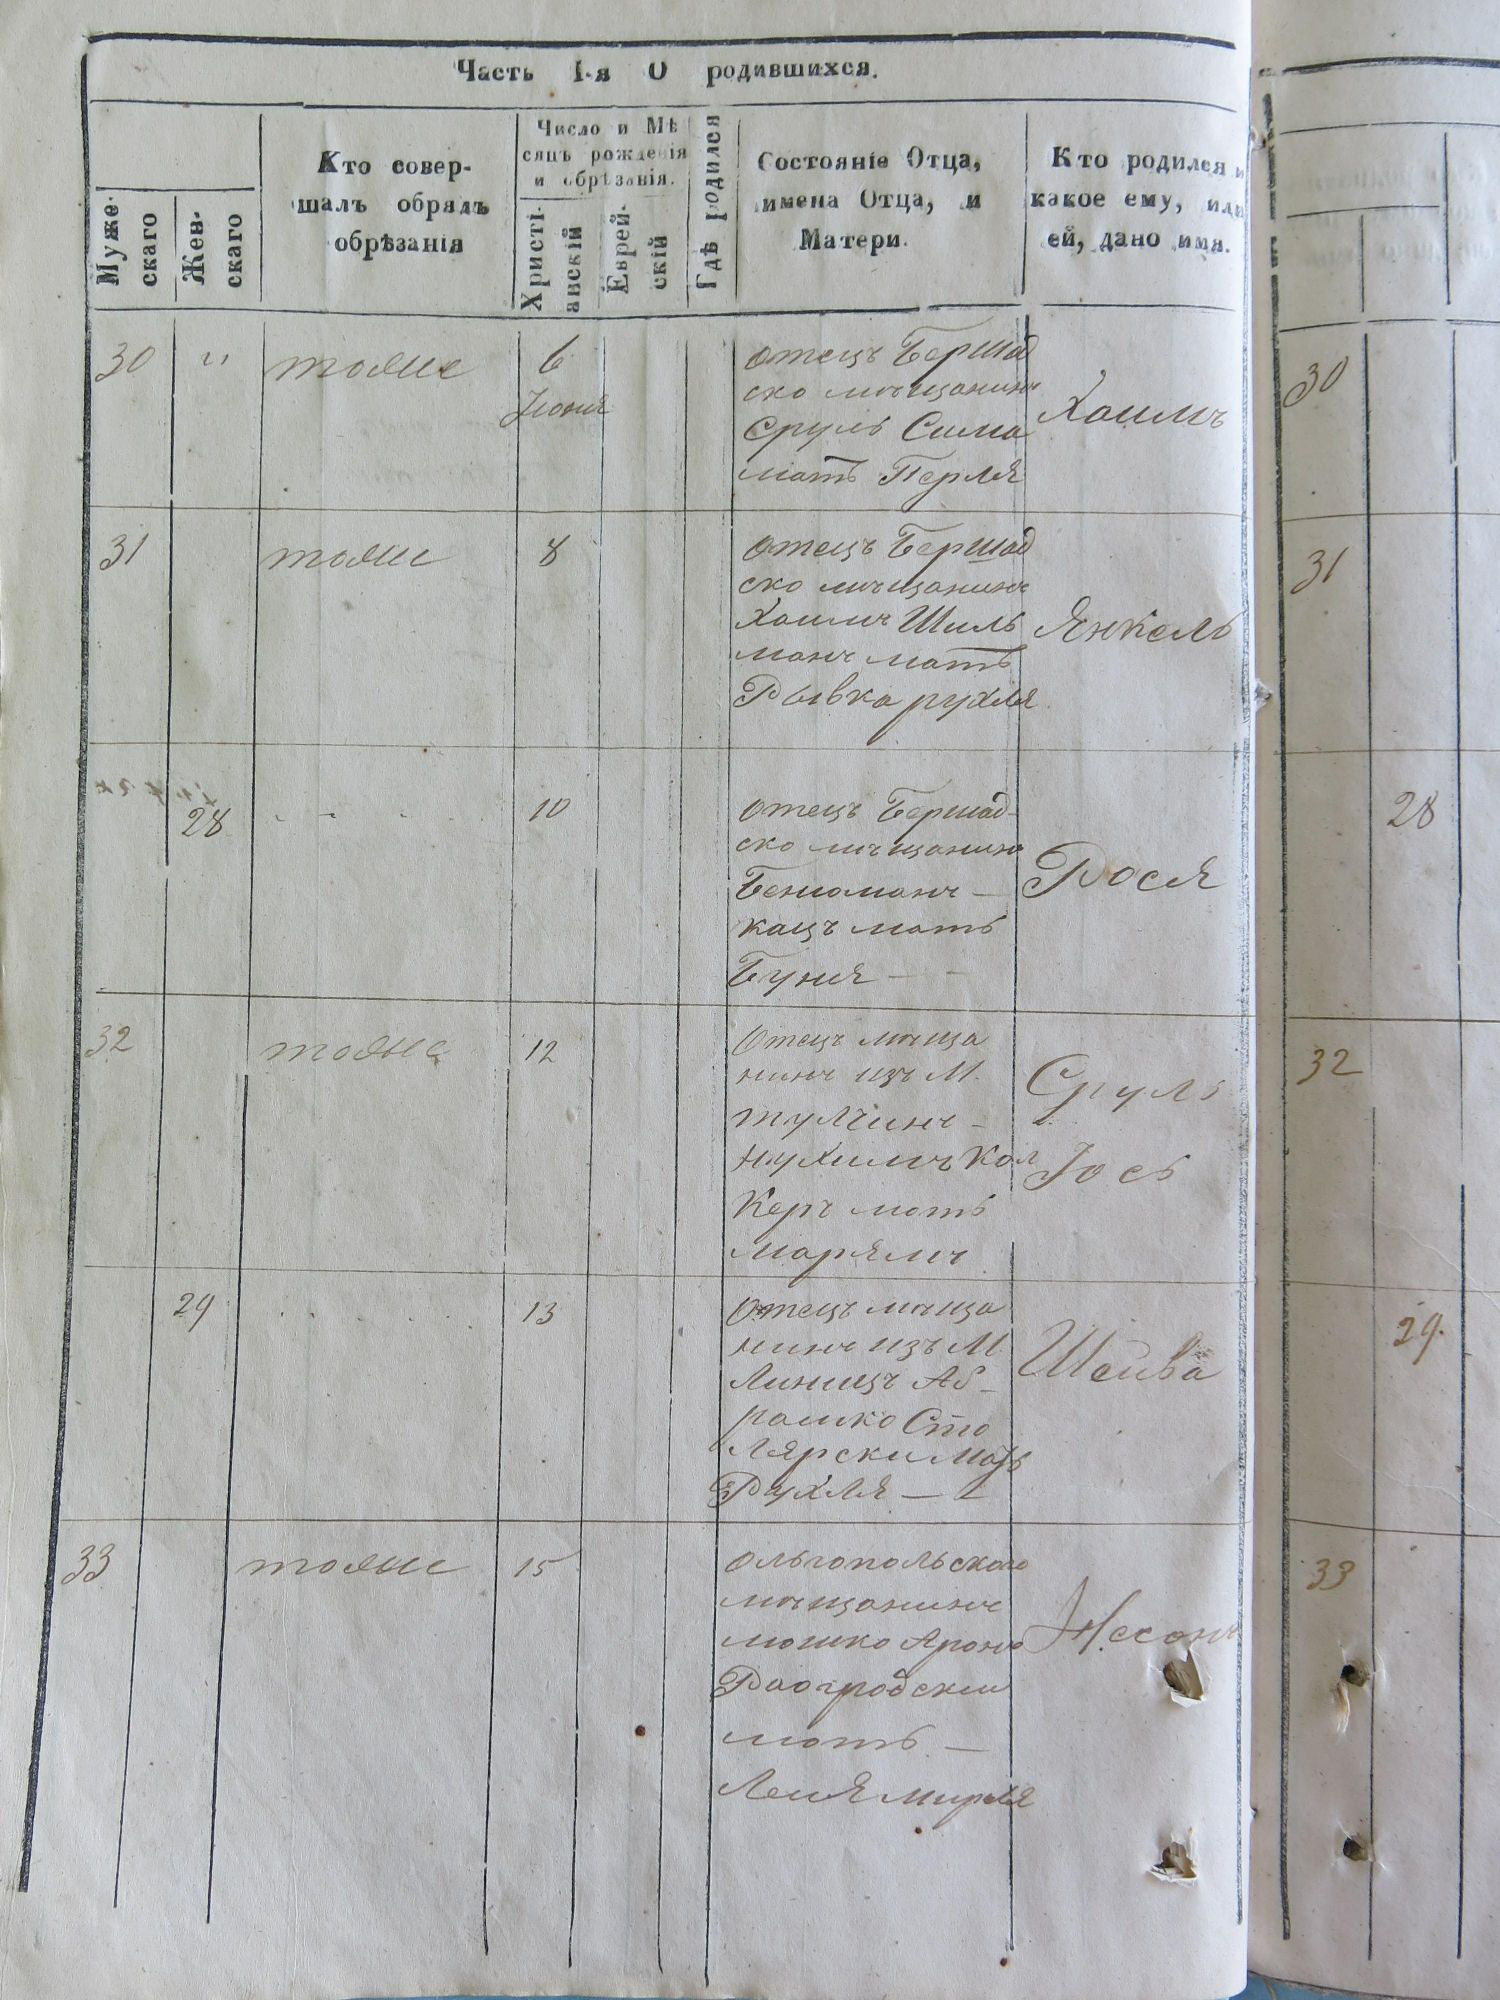 Часть I-я О родившихся.
Муже-
скаго
Жен-
скаго
Кто совер-
шалъ обрядъ
обрѣзанія
Число и Мѣ
сяцъ рожденія
и обрѣзанія.
Христі-
анскій
Еврей-
скій
Гдѣ родился
Состояніе Отца,
имена Отца, и
Матери.
Кто родился и
какое ему, или
ей, дано имя.
30 " тояже 6
Іюня
отецъ Бершад
ско мѣщанинъ
Сруль Сима
мать Перля
Хаимъ
30
31 тояже 8
отецъ Бершад
ско мѣщанинъ
Хаимъ Шиль
манъ мать
Рывка рухля
Янкель
31
28 10
отецъ Бершад-
ско мѣщанинъ
Бениоманъ -
кацъ мать
Буня -
Рося
28
32 тояже 12
Отецъ мѣща
нинъ изъ М.
тулчинъ -
нухимъ Кол
Керъ мать
марямъ
Сруль
Іось
32
29 13
Отецъ мѣща
нинъ изъ М
Линицъ Аб-
рамко Сто
лярски мать
Рухля -
Шейва
29.
33 тояже 15
ольгопольского
мѣщанинъ
мошко Аронъ
мать -
Лея мирля
33